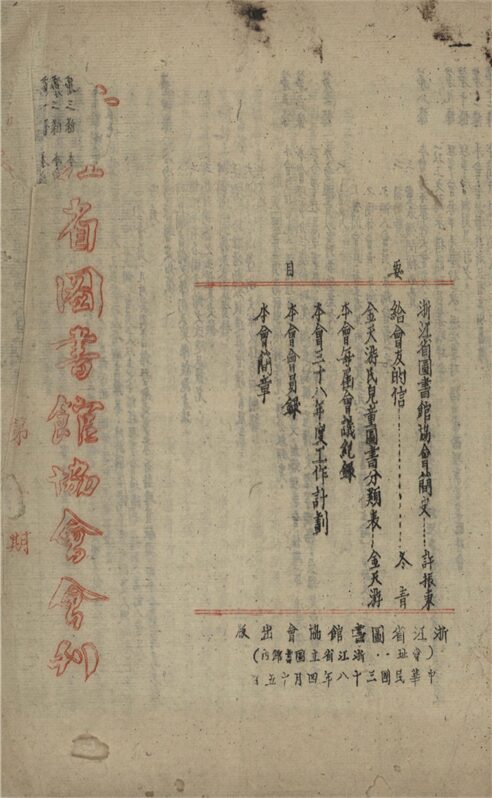 要目
浙江省圖書館協會簡史……許振東
給會友的信…………冬青
金天游氏兒童圖書分類表……金天游
本會每屆會議紀錄
本會三十八年度工作計劃
本會會員錄
本會簡章
浙江省圖書館協會出版
(會址：浙江省立圖書館內)
中華民國三十八年四月十五
江省圖書館協會會刊
第 期